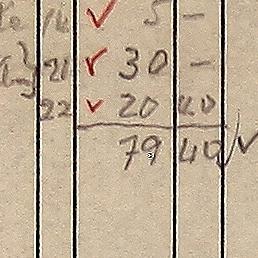 16 ✓ 5 -
21 ✓ 30 -
22 ✓ 20 40
79 40 ✓